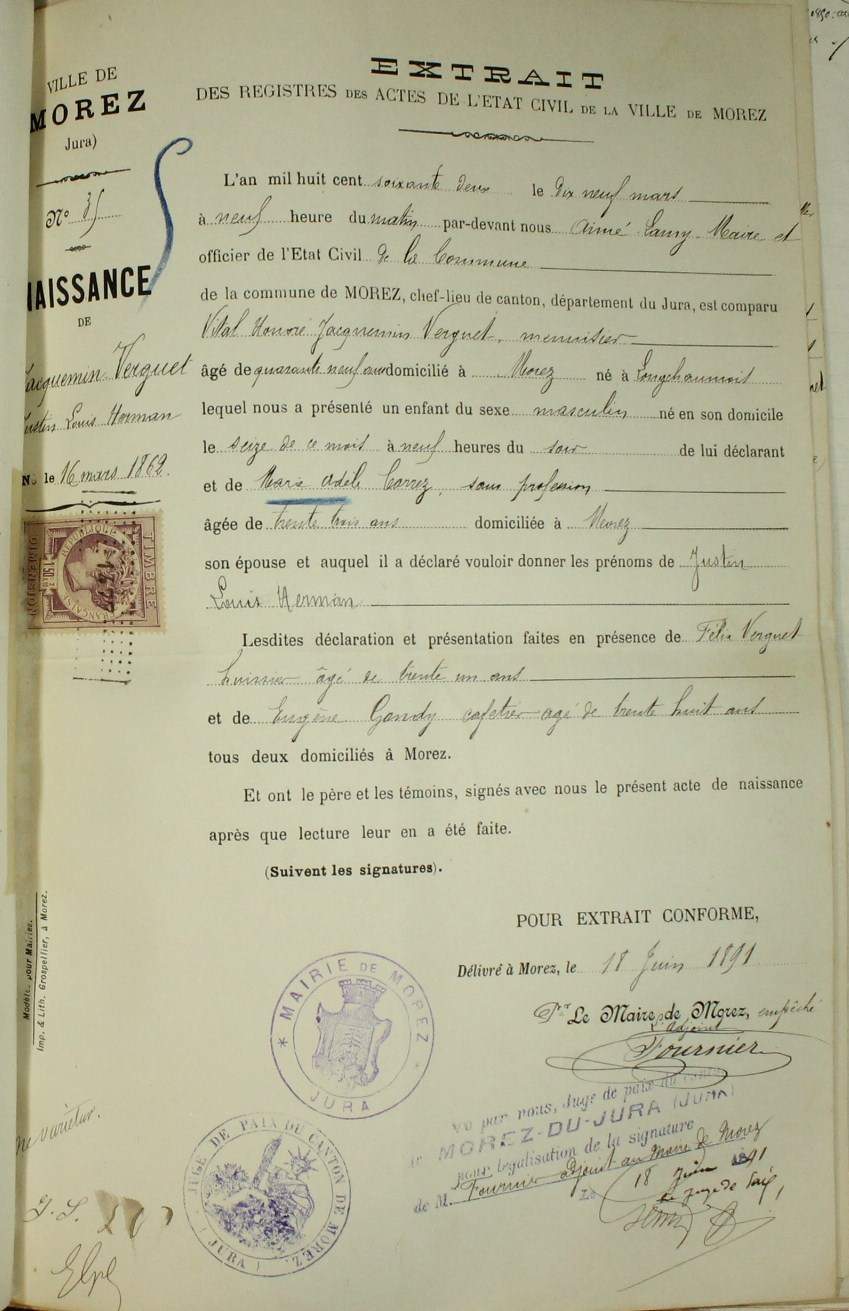 EXTRAIT
DES REGISTRES DES ACTES DE L'ETAT CIVIL DE LA VILLE DE MOREZ
VILLE DE
MOREZ
Jura)
N° 35
NAISSANCE
DE
Jacquemin Verguet
Justin Louis Herman
Né le 16 mars 1862.
TIMBRE
REPUBLIQUE
FRANÇAISE
1F50
L'an mil huit cent soixante deux le dix neuf mars
à neuf heure du matin par-devant nous Aimé Lamy Maire et
officier de l'Etat Civil de la Commune
de la commune de MOREZ, chef-lieu de canton, département du Jura, est comparu
Vital Honoré Jacquemin Verguet, menuisier
âgé de quarante neuf ans domicilié à Morez né à Longchaumois
lequel nous a présenté un enfant du sexe masculin né en son domicile
le seize de ce mois à neuf heures du soir de lui déclarant
et de Marie Adèle Carrez, sans profession
âgée de trente trois ans domiciliée à Morez
son épouse et auquel il a déclaré vouloir donner les prénoms de Justin
Louis Herman
Lesdites déclaration et présentation faites en présence de Félix Verguet
huissier âgé de trente un ans
et de Eugène Gandy cafetier agé de trente huit ans
tous deux domiciliés à Morez.
Et ont le père et les témoins, signés avec nous le présent acte de naissance
après que lecture leur en a été faite.
(Suivent les signatures).
POUR EXTRAIT CONFORME,
Délivré à Morez, le 18 Juin 1891
Pr Le Maire de Morez, empêché
L'adjoint
Fournier
Modèle pour Mairies.
Imp. & Lith. Grospellier, à Morez.
* MAIRIE DE MOREZ *
JURA
Vu par nous, Juge de paix du canton
MOREZ-DU-JURA (JURA)
pour légalisation de la signature
de M. Fournier adjoint au Maire de Morez
Le 18 Juin 1891
Le juge de Paix,
JUGE DE PAIX DU CANTON DE MOREZ
(JURA)
ne varietur.